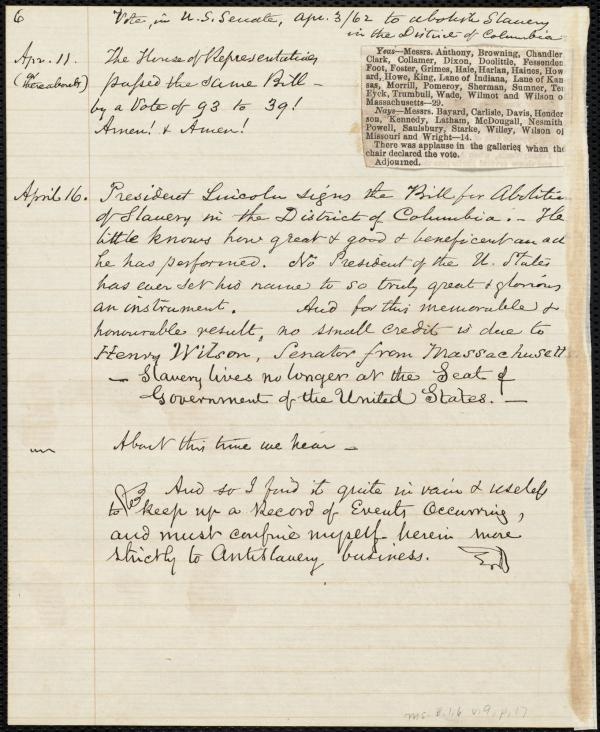 6 Vote, in U.S. Senate, Apr. 3/62 to abolish Slavery
in the District of Columbia
Yeas—Messrs. Anthony, Browning, Chandler
Clark, Collamer, Dixon, Doolittle, Fessenden
Foot, Foster, Grimes, Hale, Harlan, Haines, How
ard, Howe, King, Lane of Indiana, Lane of Kan
sas, Morrill, Pomeroy, Sherman, Sumner, Ten
Eyck, Trumbull, Wade, Wilmot and Wilson o
Massachusetts—29.
Nays—Messrs. Bayard, Carlisle, Davis, Hender
son, Kennedy, Latham, McDougall, Nesmith
Powell, Saulsbury, Starke, Willey, Wilson of
Missouri and Wright—14.
There was applause in the galleries when the
chair declared the vote.
Adjourned.
Apr. 11. The House of Representatives
(or thereabouts) passed the same Bill —
by a Vote of 93 to 39!
Amen! & Amen!
April 16. President Lincoln signs the Bill for Abolition
of Slavery in the District of Columbia. — He
little knows how great & good & beneficent an act
he has performed. No President of the U. States
has ever set his name to so truly great & glorious
an instrument. And for this memorable &
honourable result, no small credit is due to
Henry Wilson, Senator from Massachusett
— Slavery lives no longer at the Seat of
Government of the United States. —
About this time we hear —
And so I find it quite in vain & useless
to keep up a Record of Events Occurring,
and must confine myself herein more
strictly to Antislavery business.
Ms. B.1.6 v.9, p.17